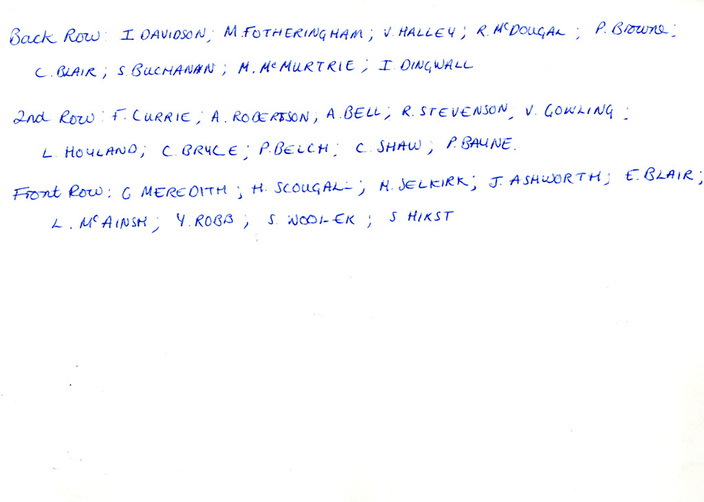 Back Row: I DAVIDSON; M. FOTHERINGHAM; V. HALLEY; R. McDOUGAL; P. Browne;
C. BLAIR; S. BUCHANAN; M. McMURTRIE; I DINGWALL
2nd Row: F. CURRIE; A. ROBERTSON, A. BELL; R. STEVENSON, V. GOWLING;
L. HOYLAND; C. BRYCE; P. BELCH; C. SHAW; P. BAYNE.
Front Row: G MEREDITH; H. SCOUGAL; M. SELKIRK; J. ASHWORTH; E. BLAIR;
L. McAINSH; Y. ROBB; S. S HIRST